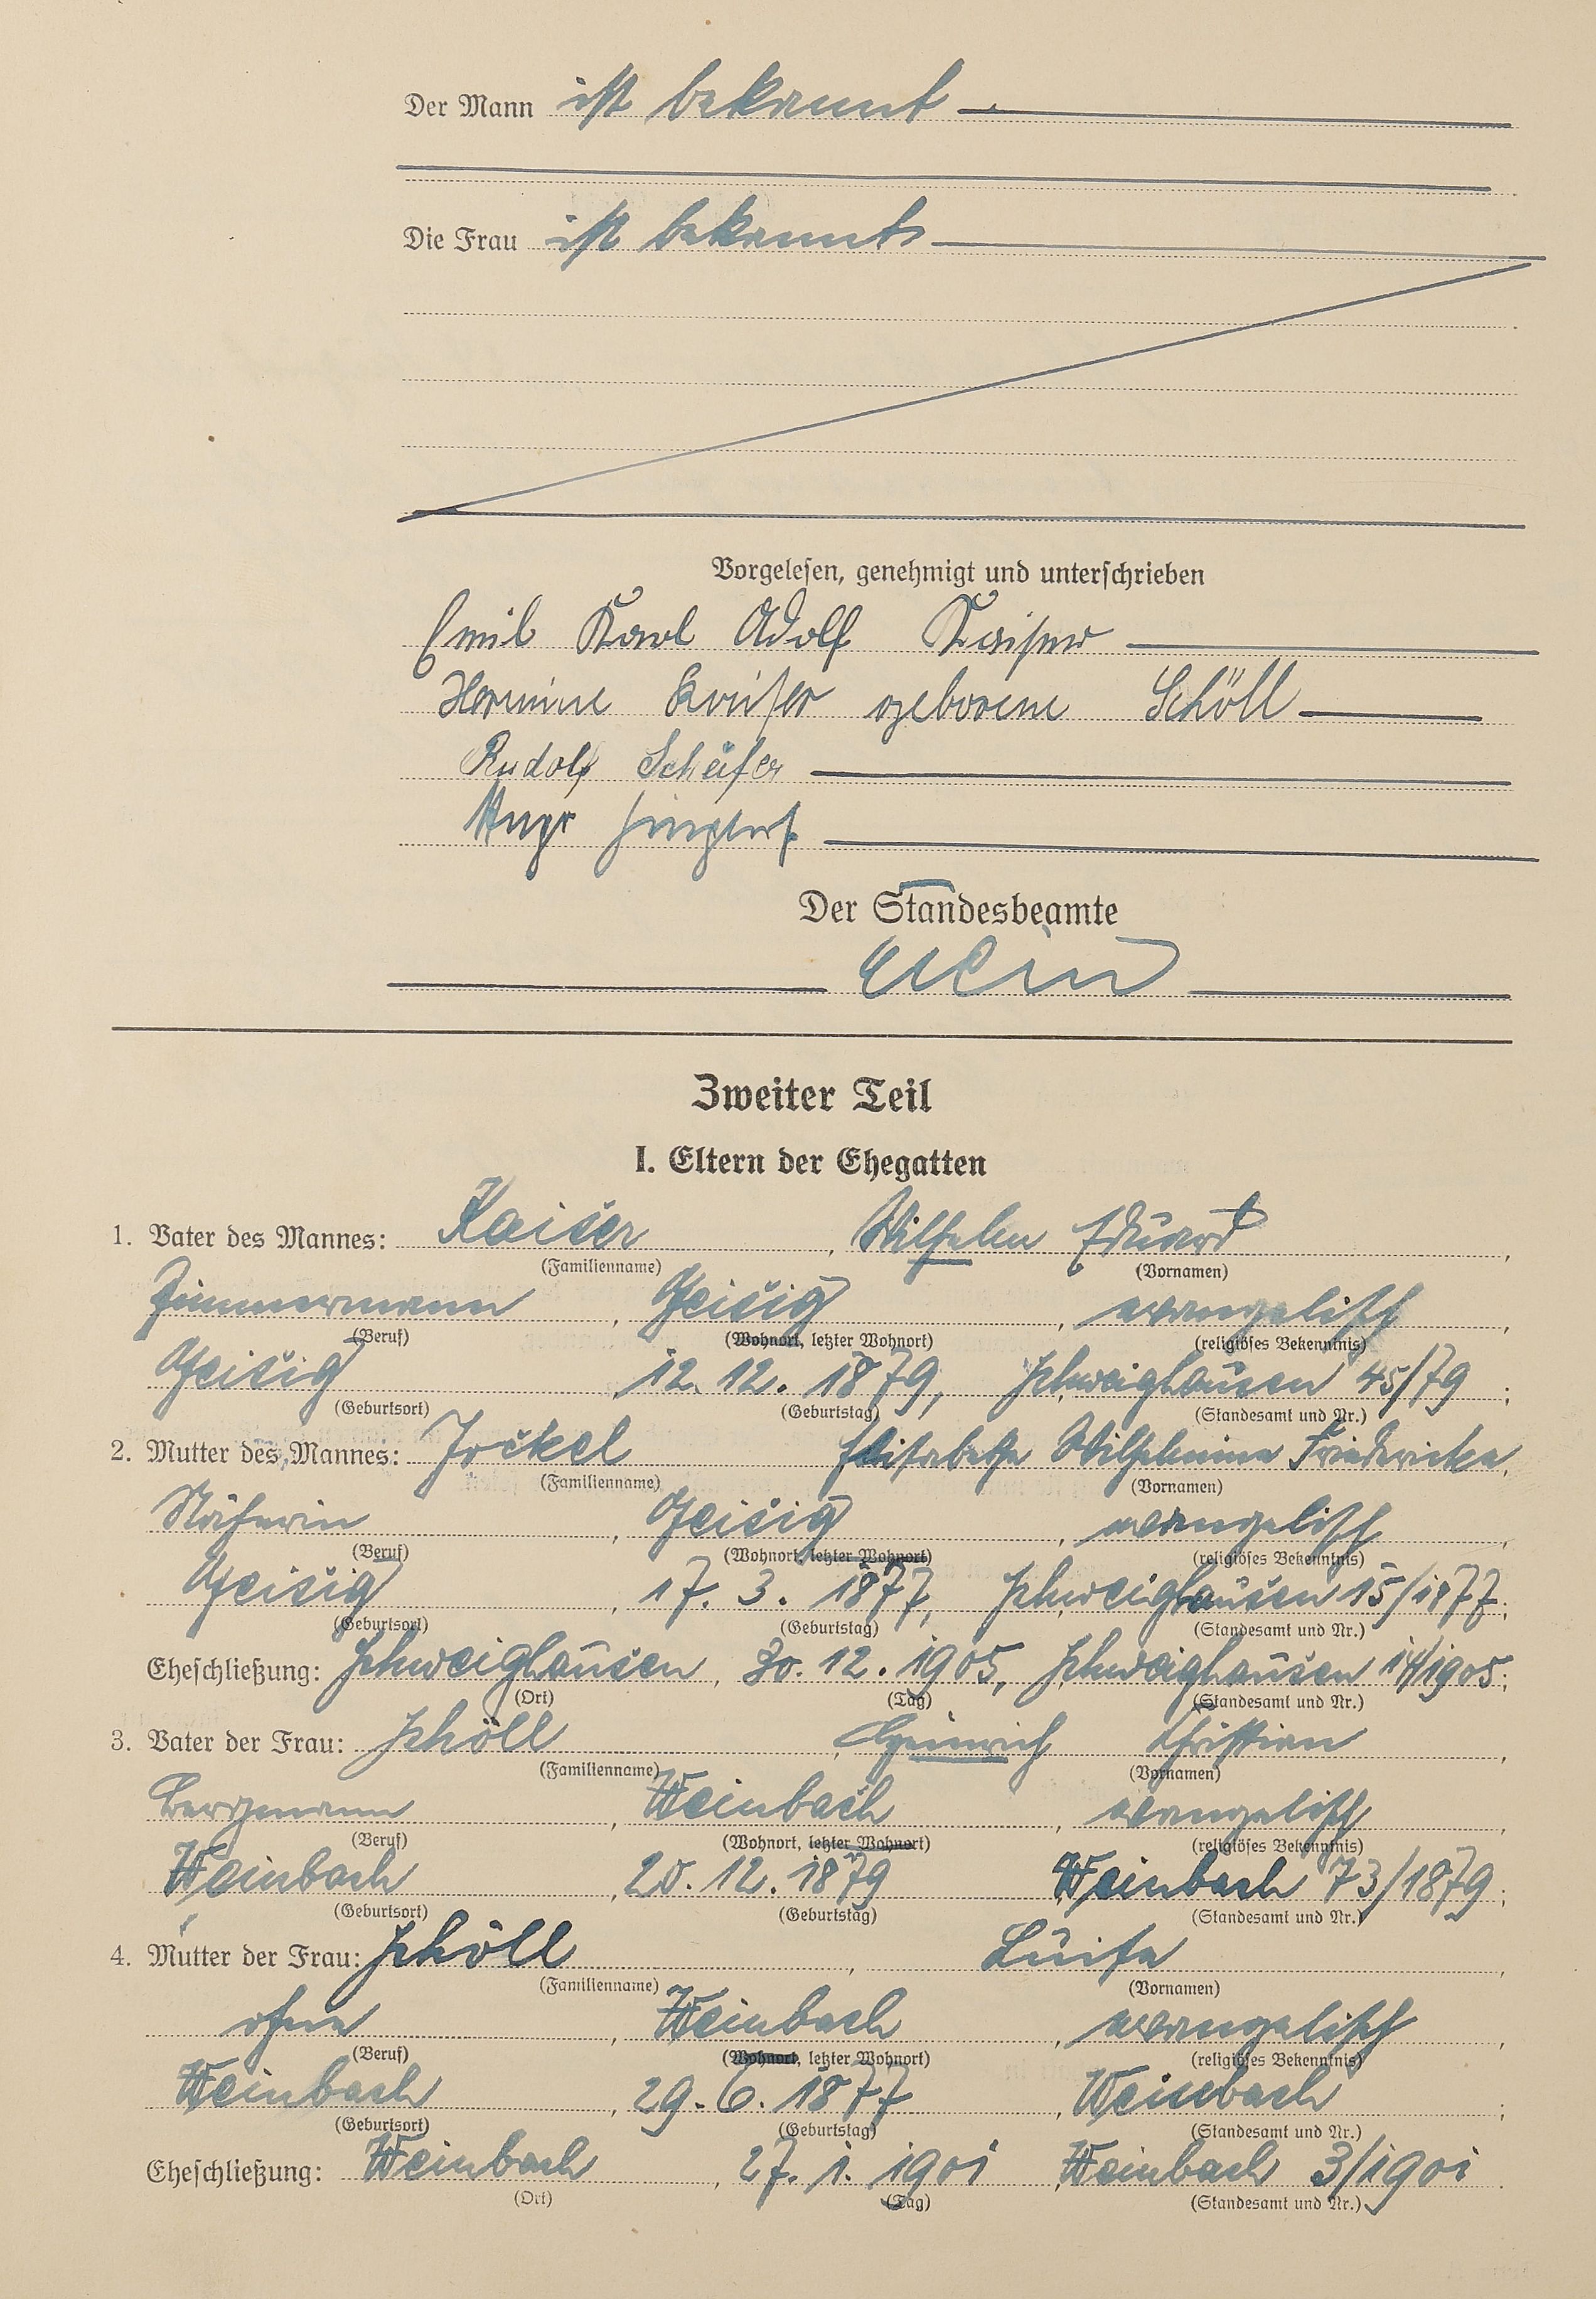 Der Mann ist bekannt
Die Frau ist bekannt
Vorgelesen, genehmigt und unterschrieben
Emil Karl Adolf Kaiser
Hermine Kaiser geborene Schöll
Rudolf Schäfer
Der Standesbeamte
Zweiter Teil
I. Eltern der Ehegatten
1. Vater des Mannes: Kaiser, Wilhelm Eduard,
(Familienname) (Vornamen)
Zimmermann, Geisig, evangelisch,
(Beruf) (Wohnort, letzter Wohnort) (religiöses Bekenntnis)
Geisig, 12. 12. 1879, Schweighausen 45/79;
(Geburtsort) (Geburtstag) (Standesamt und Nr.)
2. Mutter des Mannes: Jockel Elisabethe Wilhelmine Friedericke,
(Familienname) (Vornamen)
Näherin, Geisig, evangelisch,
(Beruf) (Wohnort, letzter Wohnort) (religiöses Bekenntnis)
Geisig, 17. 3. 1877, Schweighausen 15/1877;
(Geburtsort) (Geburtstag) (Standesamt und Nr.)
Eheschließung: Schweighausen, 30. 12. 1905, Schweighausen 14/1905;
(Ort) (Tag) (Standesamt und Nr.)
3. Vater der Frau: Schöll, Heinrich Christian,
(Familienname) (Vornamen)
Bergmann, Weinbach, evangelisch,
(Beruf) (Wohnort, letzter Wohnort) (religiöses Bekenntnis)
Weinbach, 20. 12. 1879 Weinbach 73/1879;
(Geburtsort) (Geburtstag) (Standesamt und Nr.)
4. Mutter der Frau: Schöll, Luise,
(Familienname) (Vornamen)
ohne, Weinbach, evangelisch,
(Beruf) (Wohnort, letzter Wohnort) (religiöses Bekenntnis)
Weinbach, 29. 6. 1877, Weinbach;
(Geburtsort) (Geburtstag) (Standesamt und Nr.)
Eheschließung: Weinbach, 27. 1. 1901, Weinbach 3/1901.
(Ort) (Tag) (Standesamt und Nr.)